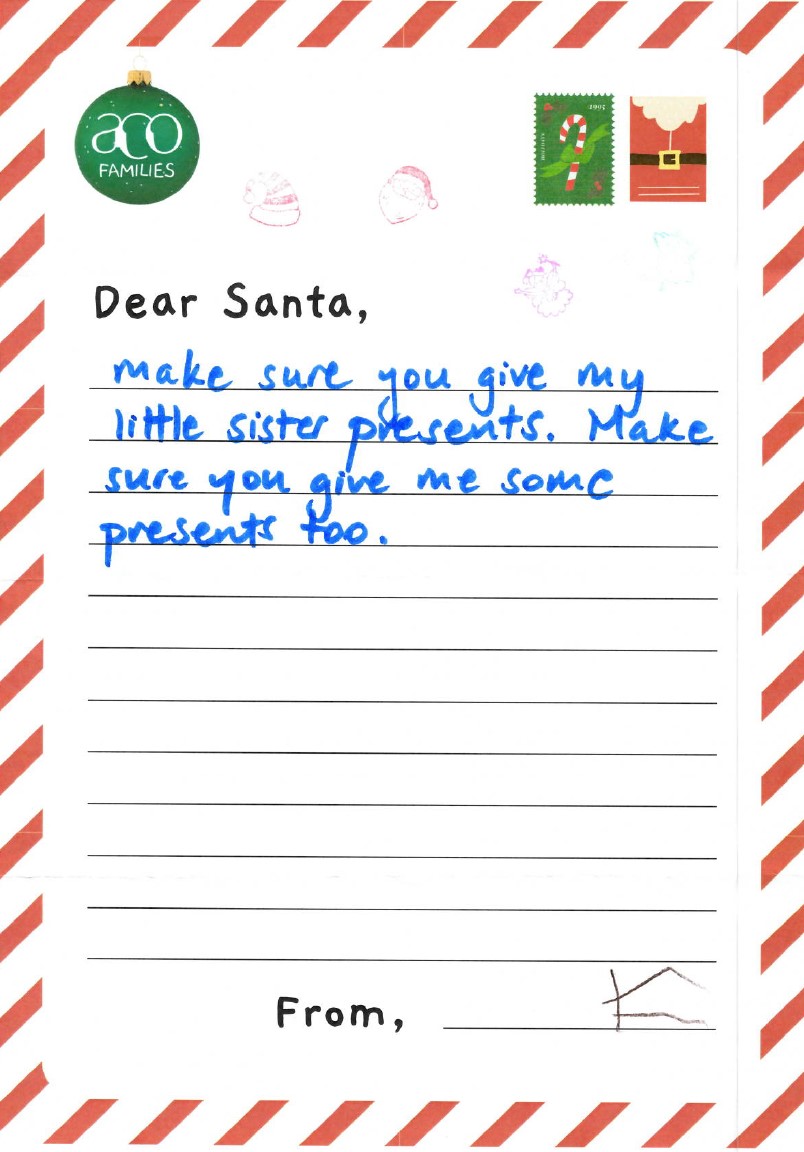 aco
FAMILIES
1995
Dear Santa,
make sure you give my
little sister presents. Make
sure you give me some
presents too.
From,